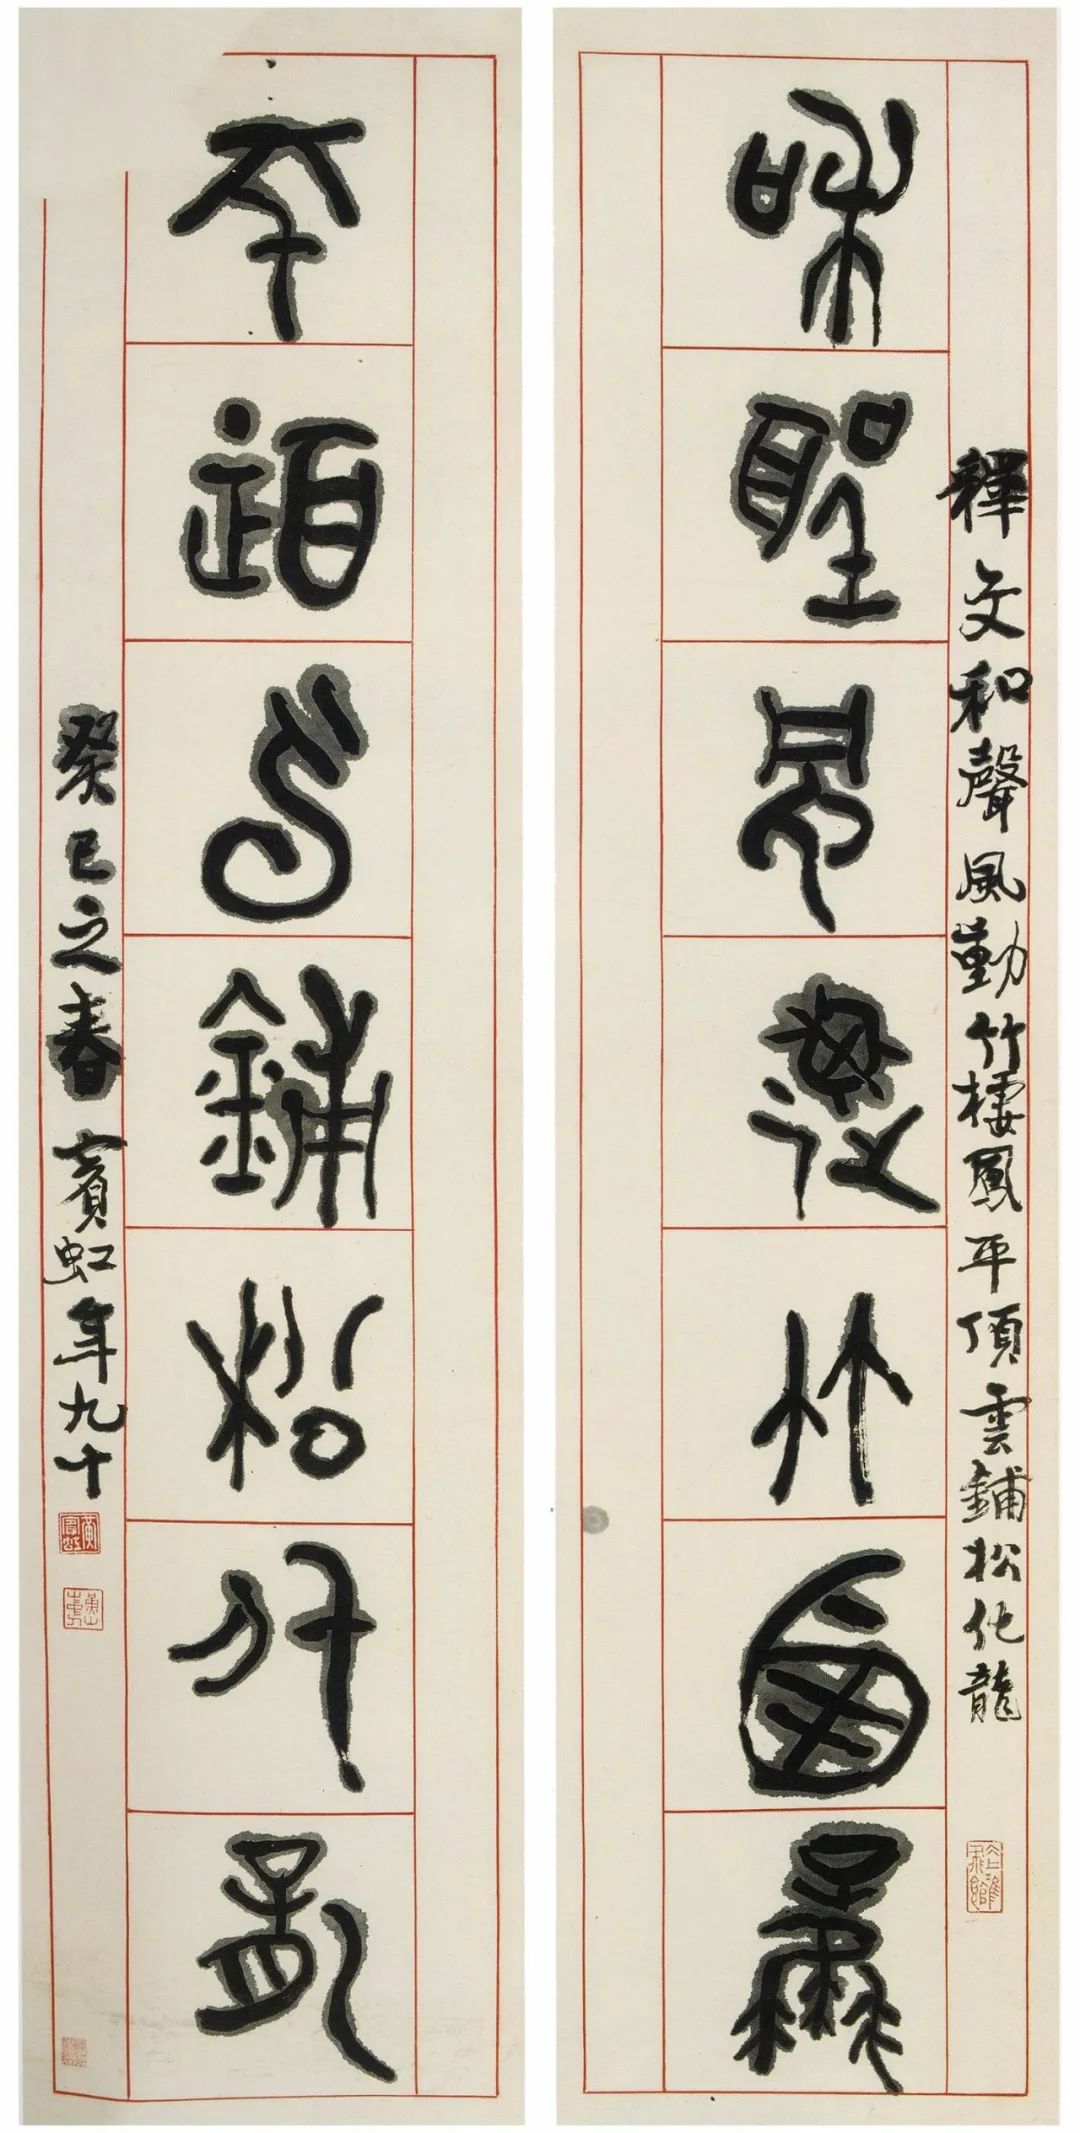 釋文和聲風動竹棲鳳平頂雲鋪松化龍
和聲風動竹棲鳳
平頂雲鋪松化龍
癸巳之春賓虹年九十
黃賓虹